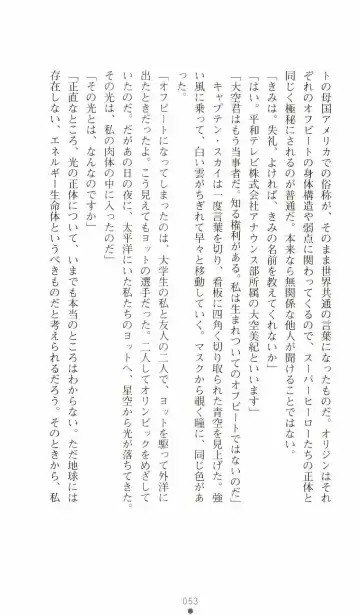 トの母国アメリカでの俗称が、そのまま世界共通の言葉になったものだ。オリジンはそれ
ぞれのオフビートの身体構造や弱点に関わってくるので、スーパーヒーローたちの正体と
同じく極秘にされるのが普通だ。本来なら無関係な他人が聞けることではない。
「きみは。失礼、よければ、きみの名前を教えてくれないか」
「はい。平和テレビ株式会社アナウンス部所属の大空美紀といいます」
「大空君はもう当事者だ、知る権利がある。私は生まれついてのオフビートではないのだ」
キャプテン・スカイは一度言葉を切り、看板に四角く切り取られた青空を見上げた。強
い風に乗って、白い雲がちぎれて早々と移動していく。マスクから覗く瞳に、同じ色があ
った。
「オフビートになってしまったのは、大学生の私と友人の二人で、ヨットを駆って外洋に
出たときだったよ。こう見えてもヨットの選手だった。二人してオリンピックをめざして
いたのだ。だがあの日の夜に、太平洋にいた私たちのヨットへ、星空から光が落ちてきた。
その光は、私の肉体の中に入ったのだ」
「その光とは、なんなのですか」
「正直なところ、光の正体について、いまでも本当のところはわからない。ただ地球には
存在しない、エネルギー生命体というべきものだと考えられるだろう。そのときから、私
053